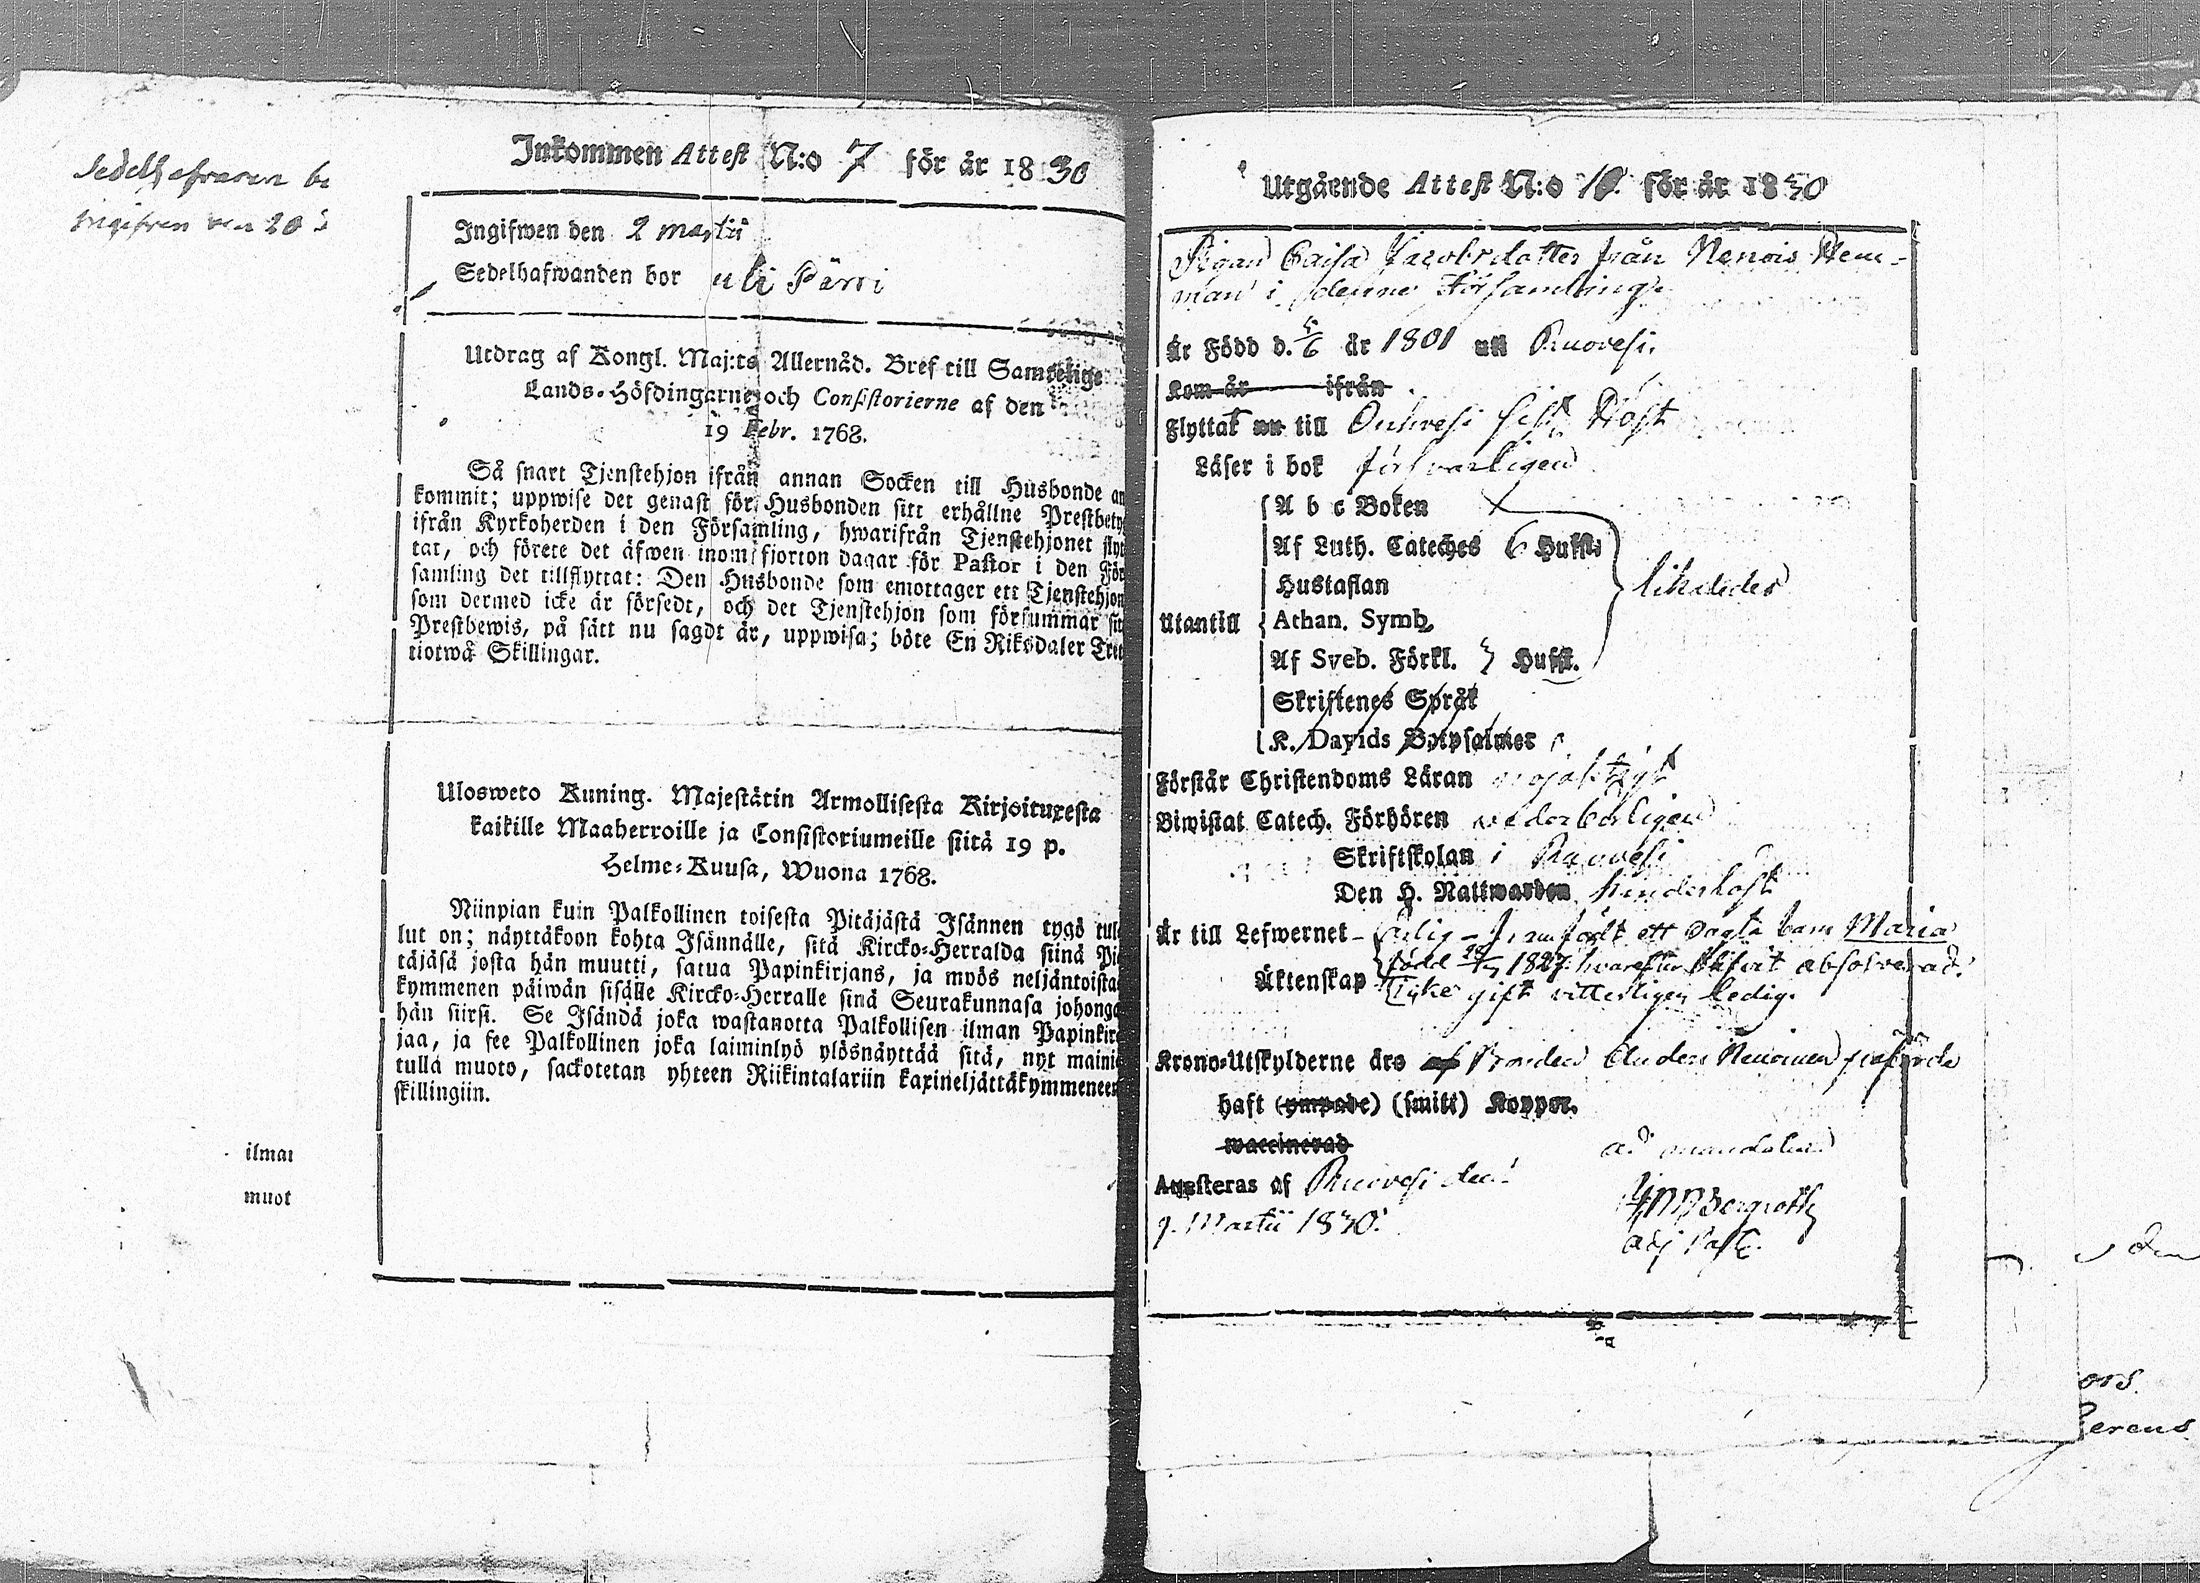 Sedelhafvaren be
Ingifven den 20
Inkommen Attest N:o 7 för år 1830
Ingifwen den 2 martii
Sedelhafwanden bor uti Pärri
Utdrag af Kongl. Maj:ts Allernåd. Bref till Samtelige
Lands-Höfdingarne och Consistorierne af den
19 Febr. 1768.
Så snart Tjenstehjon ifrån annan Socken till Husbonde an
kommit; uppwise det genast för Husbonden sitt erhållne Prestbety
ifrån Kyrkoherden i den Församling, hwarifrån Tjenstehjonet flyt
tat, och förete det äfwen inom fjorton dagar för Pastor i den För
samling det tillflyttat: Den Husbonde som emottager ett Tjenstehjon
som dermed icke är försedt, och det Tjenstehjon som försummar sit
Prestbewis, på sätt nu sagdt är, uppwisa; böte En Riksdaler Tret
tiotwå Skillingar.
Ulosweto Kuning. Majestätin Armollisesta Kirjoituxesta
kaikille Maaherroille ja Consistoriumeille siitä 19 p.
Helme-Kuusa, Wuona 1768.
Niinpian kuin Palkollinen toisesta Pitäjästä Isännen tygö tul
lut on; näyttäkoon kohta Isännälle, sitä Kircko-Herralda siinä Pi
täjäsä josta hän muutti, satua Papinkirjans, ja myös neljäntoista
kymmenen päiwän sisälle Kircko-Herralle sinä Seurakunnasa johonga
hän siirsi. Se Isändä joka wastanotta Palkollisen ilman Papinkir
jaa, ja see Palkollinen joka laiminlyö ylösnäyttää sitä, nyt maini
tulla muoto, sackotetan yhteen Riikintalariin kaxineljättäkymmeneen
skillingiin.
ilmai
muot
Utgående Attest N:o 10 för år 1830
Pigan Caisa Jacobsdotter från Nenois Hem-
man i denne Församling.
Är Född d. 5/6 år 1801 uti Ruovesi.
Kom år ifrån
Flyttat nu till Onkvesi sistl. Höst
Läser i bok försvarligen
A b c Boken
Af Luth. Cateches 6 Hufst.
Hustaflan
Utantill Athan. Symb.
likaledes
Af Sveb. Förkl. 3 Hufst.
Skriftenes Språk
K. Davids Botpsalmer
Förstår Christendoms Läran nöjaktigt
Biwistat Catech. Förhören vederbörligen
Skriftskolan i Ruovesi
Den H. Nattwarden hinderlöst
Är till Lefwernet - ärlig - framfödt ett oägta barn Maria
född 1827. hvarefter blifvit absolverad.
Äktenskap Icke gift vitterligen ledig.
Krono-Utskylderne äro af Bonden Anders Nenoinen påförde
haft (ympade) (smitt) Koppor.
waccinerad
ad mandatum
Attesteras af Ruovesi den
9. Martii 1830.
Bergroth
adj Past.
den
ors.